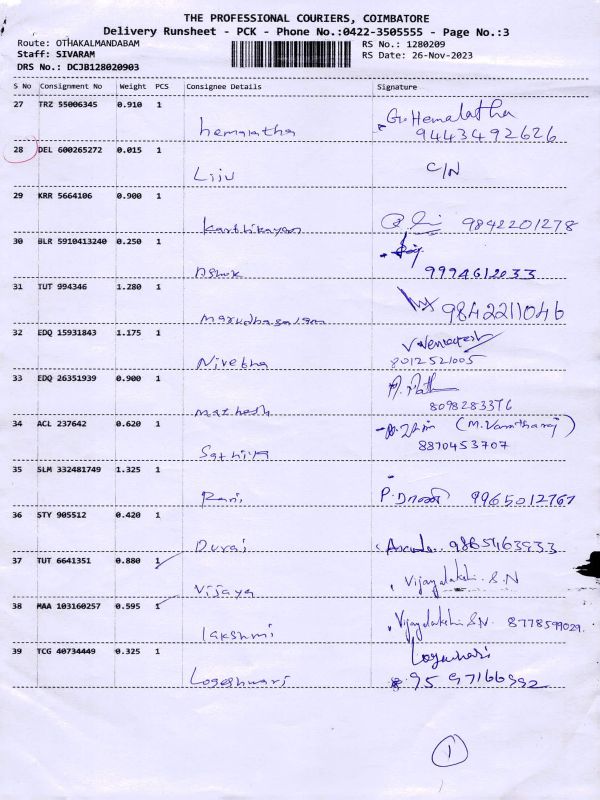 THE PROFESSIONAL COURIERS, COIMBATORE
Delivery Runsheet - PCK - Phone No.:0422-3505555 - Page No.:3
Route: OTHAKALMANDABAM RS No.: 1280209
Staff: SIVARAM RS Date: 26-Nov-2023
DRS No.: DCJB128020903
S No Consignment No Weight PCS Consignee Details Signature
27 TRZ 55006345 0.910 1 hemalatha G. Hemalatha
9443492626
28 DEL 600265272 0.015 1 Liju C/N
29 KRR 5664106 0.900 1 Karthikayan 9842201278
30 BLR 5910413240 0.250 1 Ashok
9994612033
31 TUT 994346 1.280 1 Marudhasalam 9842211046
32 EDQ 15931843 1.175 1 Nivetha V. Venkatesh
8012521005
33 EDQ 26351939 0.900 1 Mathesh
8098283376
34 ACL 237642 0.620 1 Sathiya (M. Vanitharaj)
8870453707
35 SLM 332481749 1.325 1 Rani P. ராணி 9965012767
36 STY 905512 0.420 1 Durai 9865463933
37 TUT 6641351 0.880 1 Vijaya Vijayalakshi. S.N
38 MAA 103160257 0.595 1 lakshmi Vijayalakshi S.N. 8778599029
39 TCG 40734449 0.325 1 Logeshwari Logeshwari
9597166992
1